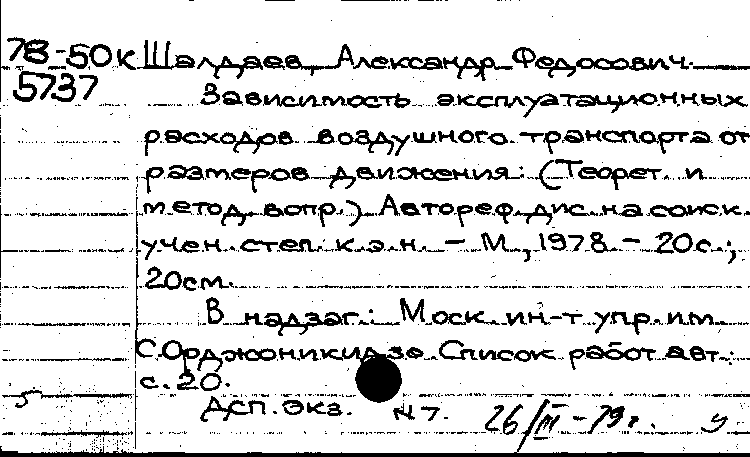 78-50к Шалдаев, Александр Федосович.
5737 Зависимость эксплуатационных
расходов воздушного транспорта от
размеров движения: (Теорет. и
метод. вопр.) Автореф. дис. на соиск.
учен. степ. к.э.н. – М, 1978 – 20с.;
20см.
В надзаг.: Моск. ин-т упр. им.
С.Орджоникидзе. Список работ авт.:
с.20.
5 Дсп. экз. N7. 26/III-79г. у